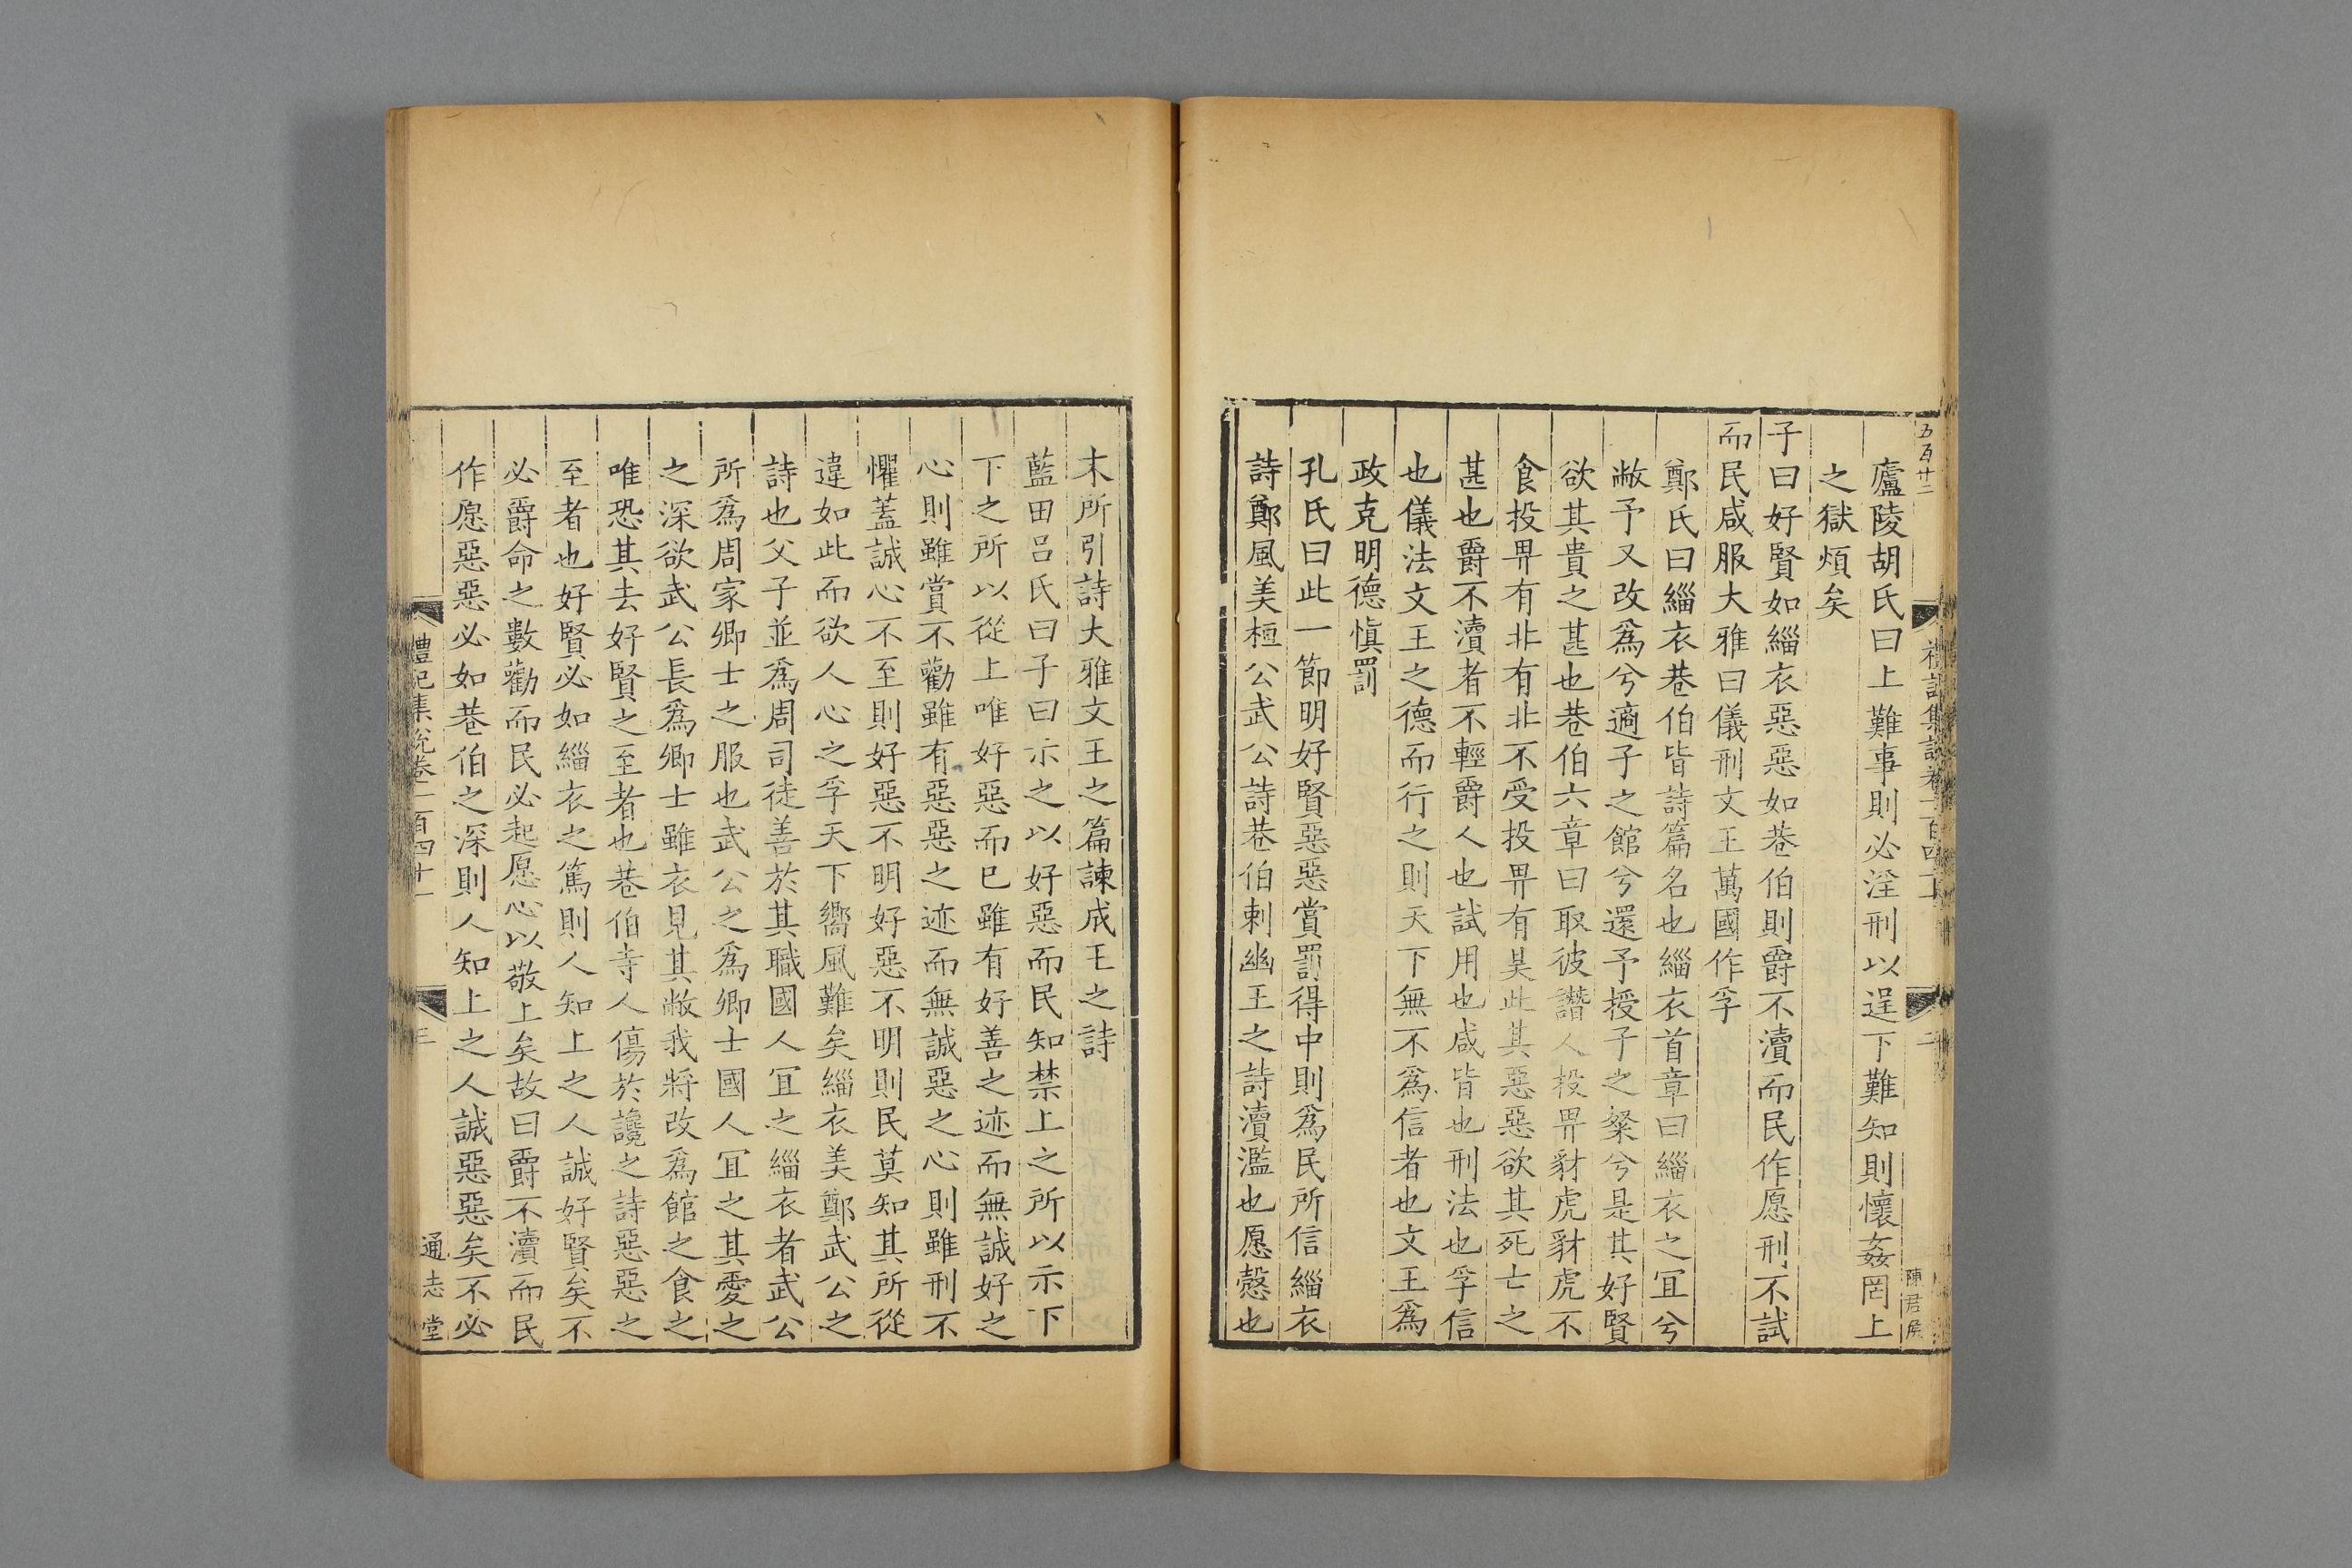 五百廿二
廬陵胡氏曰上難事則必淫刑以逞下難知則懷姦罔上
之獄煩矣
子曰好賢如緇衣惡惡如巷伯則爵不瀆而民作愿刑不試
而民咸服大雅曰儀刑文王萬國作孚
鄭氏曰緇衣巷伯皆詩篇名也緇衣首章曰緇衣之宜兮
敝予又改爲兮適子之館兮還予授子之粲兮是其好賢
欲其貴之甚也巷伯六章曰取彼譖人投畀豺虎豺虎不
食投畀有非有非不受投畀有昊此其惡惡欲其死亡之
甚也爵不瀆者不輕爵人也試用也咸皆也刑法也孚信
也儀法文王之德而行之則天下無不爲信者也文王爲
政克明德愼罰
孔氏曰此一節明好賢惡惡賞罰得中則爲民所信緇衣
詩鄭風美桓公武公詩巷伯刺幽王之詩瀆濫也愿愨也
末所引詩大雅文王之篇諫成王之詩
藍田呂氏曰子曰示之以好惡而民知禁上之所以示下
下之所以從上唯好惡而已雖有好善之迹而無誠好之
心則雖賞不勸雖有惡惡之迹而無誠惡之心則雖刑不
懼蓋誠心不至則好惡不明好惡不明則民莫知其所從
違如此而欲人心之孚天下嚮風難矣緇衣美鄭武公之
詩也父子並爲周司徒善於其職國人宜之緇衣者武公
所爲周家卿士之服也武公之爲卿士國人宜之其愛之
之深欲武公長爲卿士雖衣見其敝我將改爲館之食之
唯恐其去好賢之至者也巷伯寺人傷於讒之詩惡惡之
至者也好賢必如緇衣之篤則人知上之人誠好賢矣不
必爵命之數勸而民必起愿心以敬上矣故曰爵不瀆而民
作愿惡惡必如巷伯之深則人知上之人誠惡惡矣不必
禮記集說卷一百四十一
三
通志堂